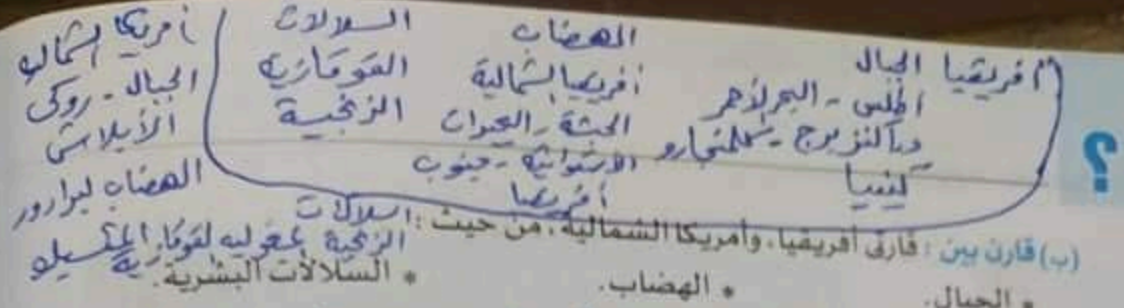 أفريقيا الجبال
أطلس - البحر الأحمر
دراكنزبرج - كلمنجارو
كينيا
الهضاب
أفريقيا الشمالية
الحبشة - البحيرات
الاستوائية - جنوب
أفريقيا
السلالات
القوقازية
الزنجية
أمريكا الشمالية
الجبال - روكى
الأبلاش
الهضاب لبرادور
السلالات
الزنجية المغولية القوقازية
(ب) قارن بين : قارتى أفريقيا، وأمريكا الشمالية، من حيث :
* الجبال. * الهضاب. * السلالات البشرية.
؟